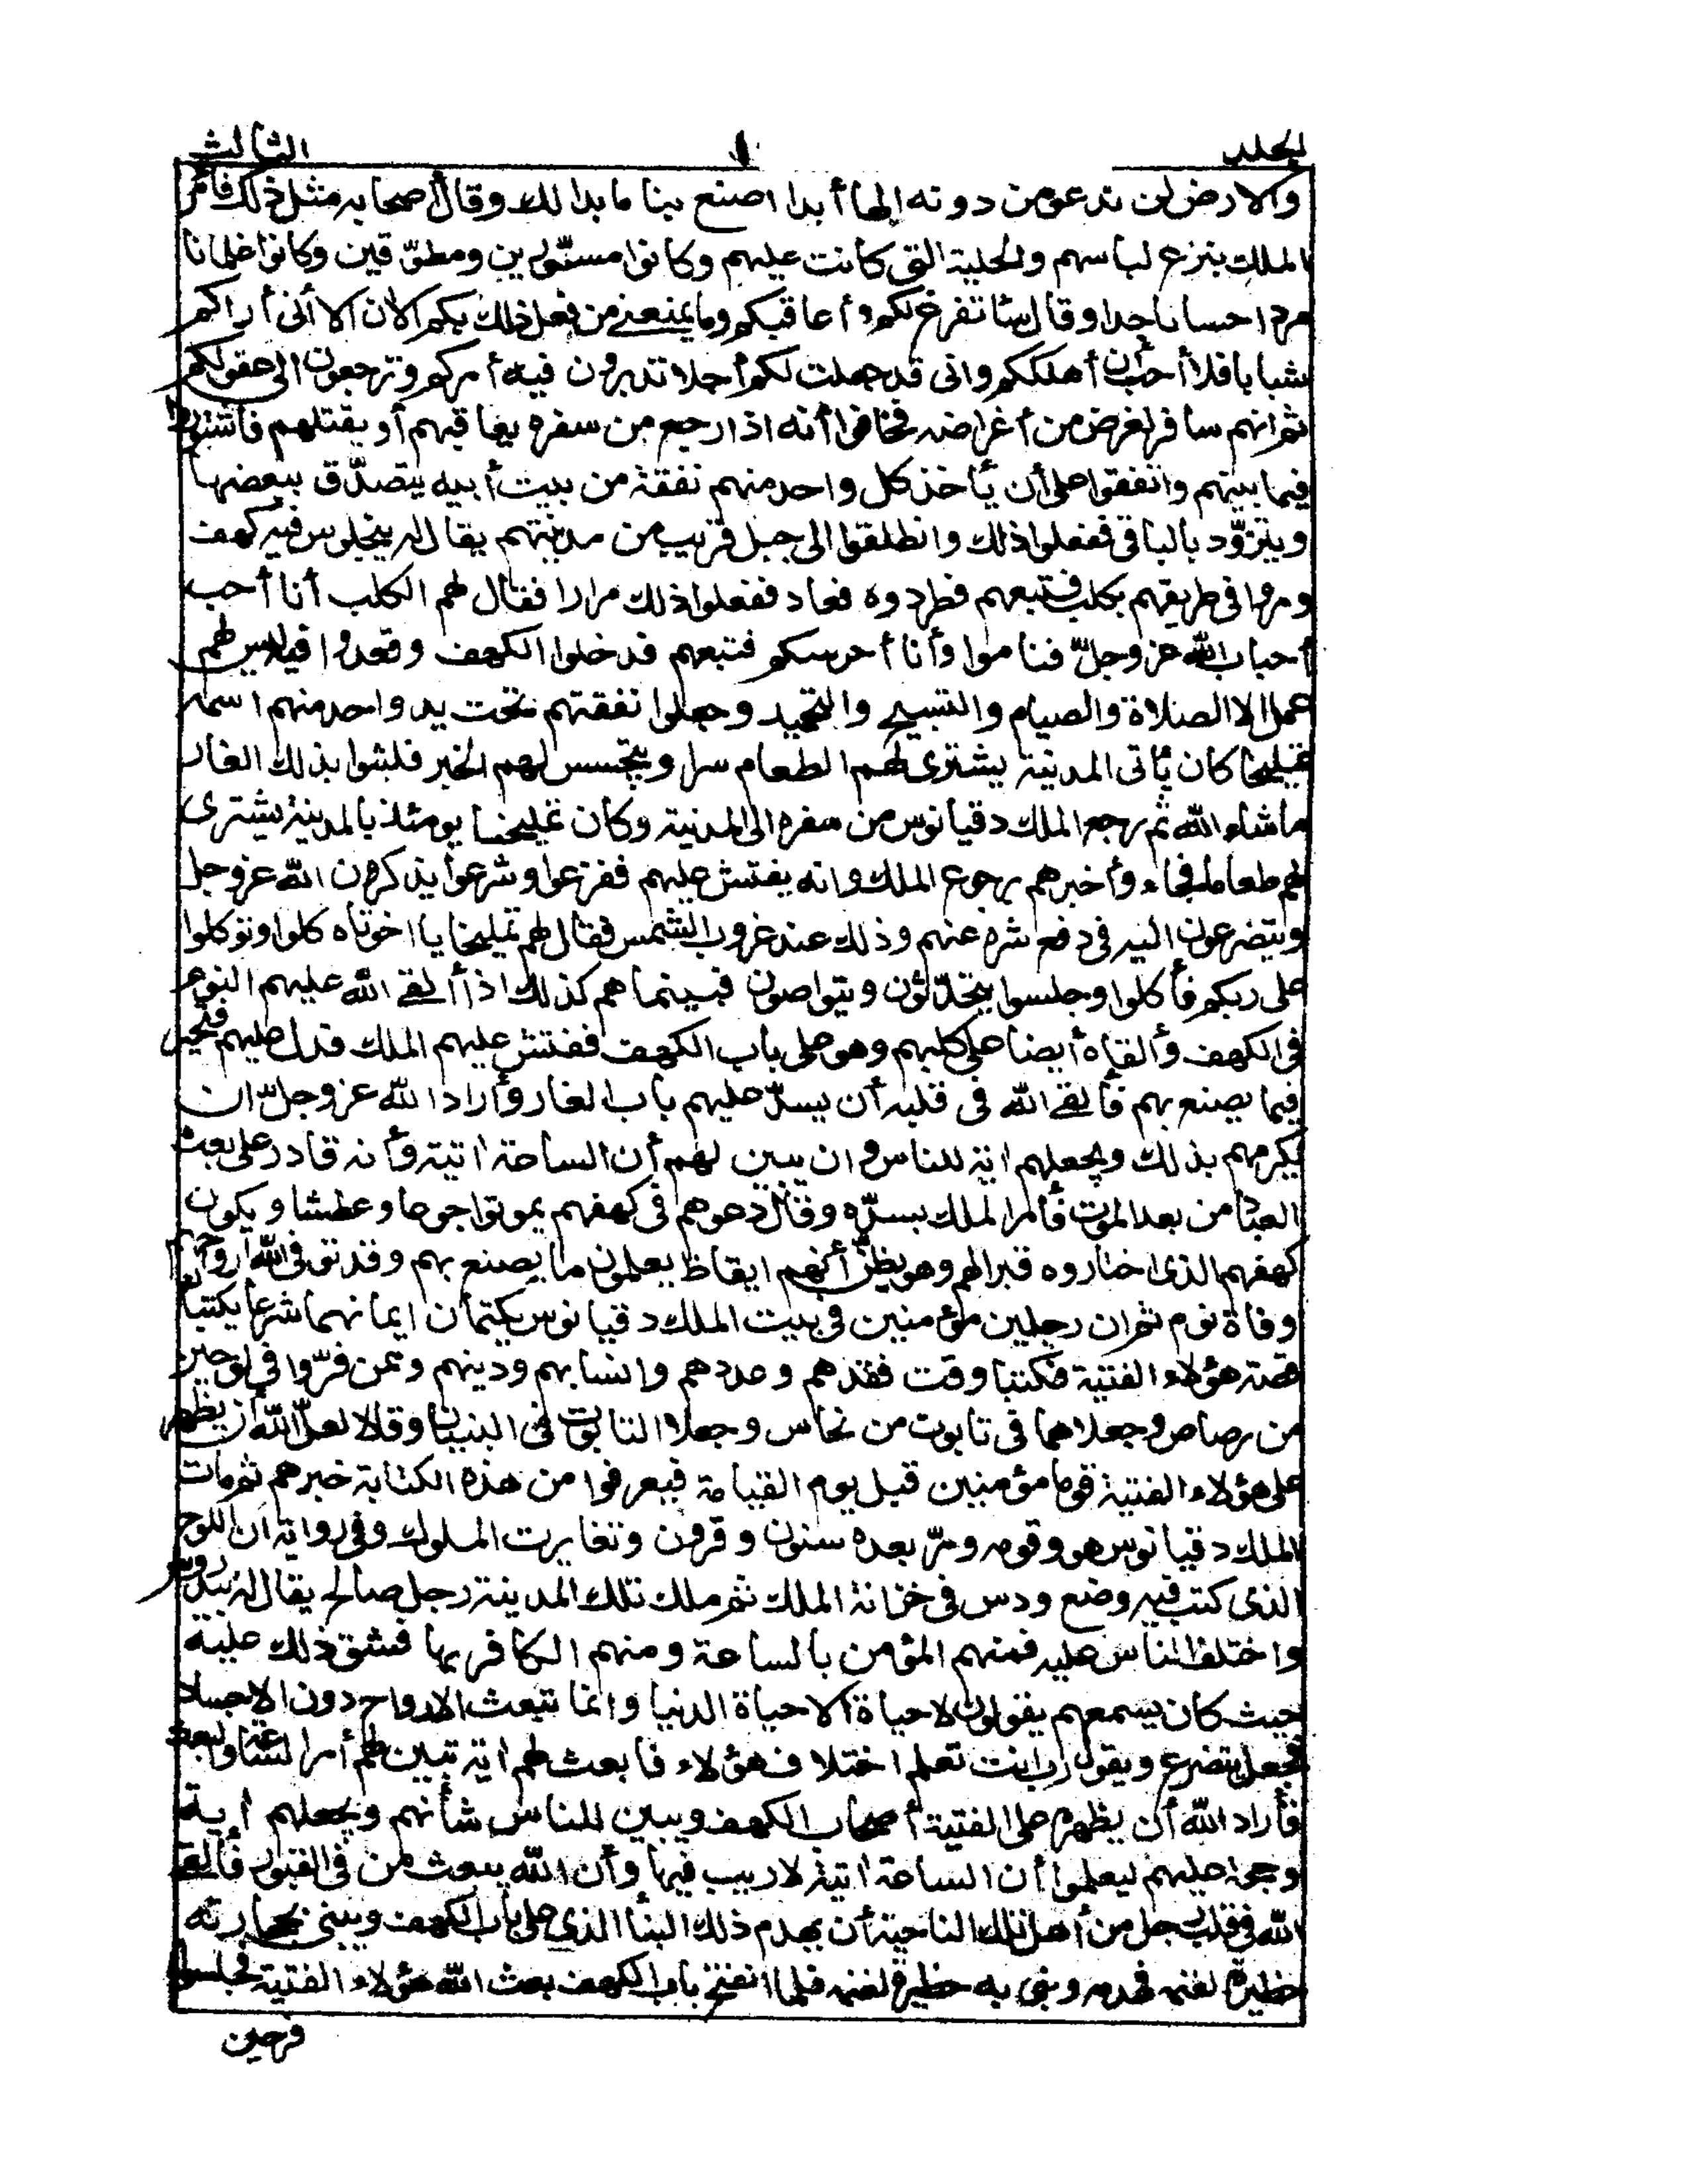 المجلد ١ الثالث
والارض لن ندعو من دونه إلها أبدا اصنع بنا ما بدا لك وقال أصحابه مثل ذلك فأمر
الملك بنزع لباسهم والحلية التي كانت عليهم وكانوا مسوّرين ومطوّقين وكانوا غلمانا
مردا حسانا جدا وقال سأتفرغ لكم وأعاقبكم وما يمنعني من فعل ذلك بكم الآن الا أني أراكم
شبابا فلا أحب أن أهلككم واني قد جعلت لكم أجلا تدبرون فيه أمركم وترجعون الى عقولكم
ثم انهم سافر لغرض من أغراضه فخافوا أنه اذا رجع من سفره يعاقبهم أو يقتلهم فاشتوروا
فيما بينهم واتفقوا على أن يأخذ كل واحد منهم نفقة من بيت أبيه يتصدّق ببعضها
ويتزوّد بالباقي ففعلوا ذلك وانطلقوا الى جبل قريب من مدينتهم يقال له ينجلوس فيه كهف
ومروا في طريقهم بكلب فتبعهم فطردوه فعاد ففعلوا ذلك مرارا فقال لهم الكلب أنا أحب
أحباب الله عز وجلّ فناموا وأنا أحرسكم فتبعهم فدخلوا الكهف وقعدوا فيه ليس لهم
عمل الا الصلاة والصيام والتسبيح والتحميد وجعلوا نفقتهم تحت يد واحد منهم اسمه
تمليخا كان يأتى المدينة يشترى لهم الطعام سرا ويتجسس لهم الخبر فلبثوا بذلك الغار
ما شاء الله ثم رجع الملك دقيانوس من سفره الى المدينة وكان تمليخا يومئذ بالمدينة يشترى
لهم طعاما فجاء وأخبرهم برجوع الملك وانه يفتش عليهم ففزعوا وشرعوا يذكرون الله عز وجل
ويتضرعون اليه فى دفع شره عنهم وذلك عند غروب الشمس فقال لهم تمليخا يا اخوتاه كلوا وتوكلوا
على ربكم فأكلوا وجلسوا يتحدّثون ويتواصون فبينما هم كذلك اذ ألقى الله عليهم النوم
فى الكهف وألقاه أيضا على كلبهم وهو على باب الكهف ففتش عليهم الملك فدل عليهم فتحير
فيما يصنع بهم فألقى الله فى قلبه أن يسدّ عليهم باب الغار وأراد الله عز وجلّ ان
يكرمهم بذلك ويجعلهم اية للناس وان يبين لهم أن الساعة اتية وأنه قادر على بعث
العباد من بعد الموت فأمر الملك بسدّه وقال دعوهم فى كهفهم يموتوا جوعا وعطشا ويكون
كهفهم الذى اختاروه قبرا لهم وهو يظنّ أنهم ايقاظ يعلمون ما يصنع بهم وقد توفى الله أرواحهم
وفاة نوم ثم ان رجلين مؤمنين فى بيت الملك دقيانوس يكتمان ايمانهما شرعا يكتبان
قصة هؤلاء الفتية فكتبا وقت فقدهم وعددهم وانسابهم ودينهم وممن فرّوا فى لوحين
من رصاص وجعلاهما فى تابوت من نحاس وجعلا التابوت فى البنيان وقالا لعل الله أن يظهر
على هؤلاء الفتية قوما مؤمنين قبل يوم القيامة فيعرفوا من هذه الكتابة خبرهم ثم مات
الملك دقيانوس هو وقومه ومرّ بعده سنون وقرون وتغايرت الملوك وفى رواية ان اللوح
الذى كتب فيه وضع ودس فى خزانة الملك ثم ملك تلك المدينة رجل صالح يقال له بيدروس
واختلف الناس عليه فمنهم المؤمن بالساعة ومنهم الكافر بها فشق ذلك عليه
حيث كان يسمعهم يقولون لا حياة الا حياة الدنيا وانما تبعث الارواح دون الاجساد
فجعل يتضرع ويقول رب انت تعلم اختلاف هؤلاء فابعث لهم اية تبين لهم أمر الساعة والبعث
فأراد الله أن يظهره على الفتية أصحاب الكهف ويبين للناس شأنهم ويجعلهم اية
وحجة عليهم ليعلموا أن الساعة اتية لا ريب فيها وأن الله يبعث من فى القبور فألقى
الله فى قلب رجل من أهل تلك الناحية أن يهدم ذلك البنأ الذى على باب الكهف ويبنى بحجارته
حظيرة لغنمه فهدمه وبنى به حظيرة لغنمه فلما انفتح باب الكهف بعث الله هؤلاء الفتية فجلسوا
فرحين